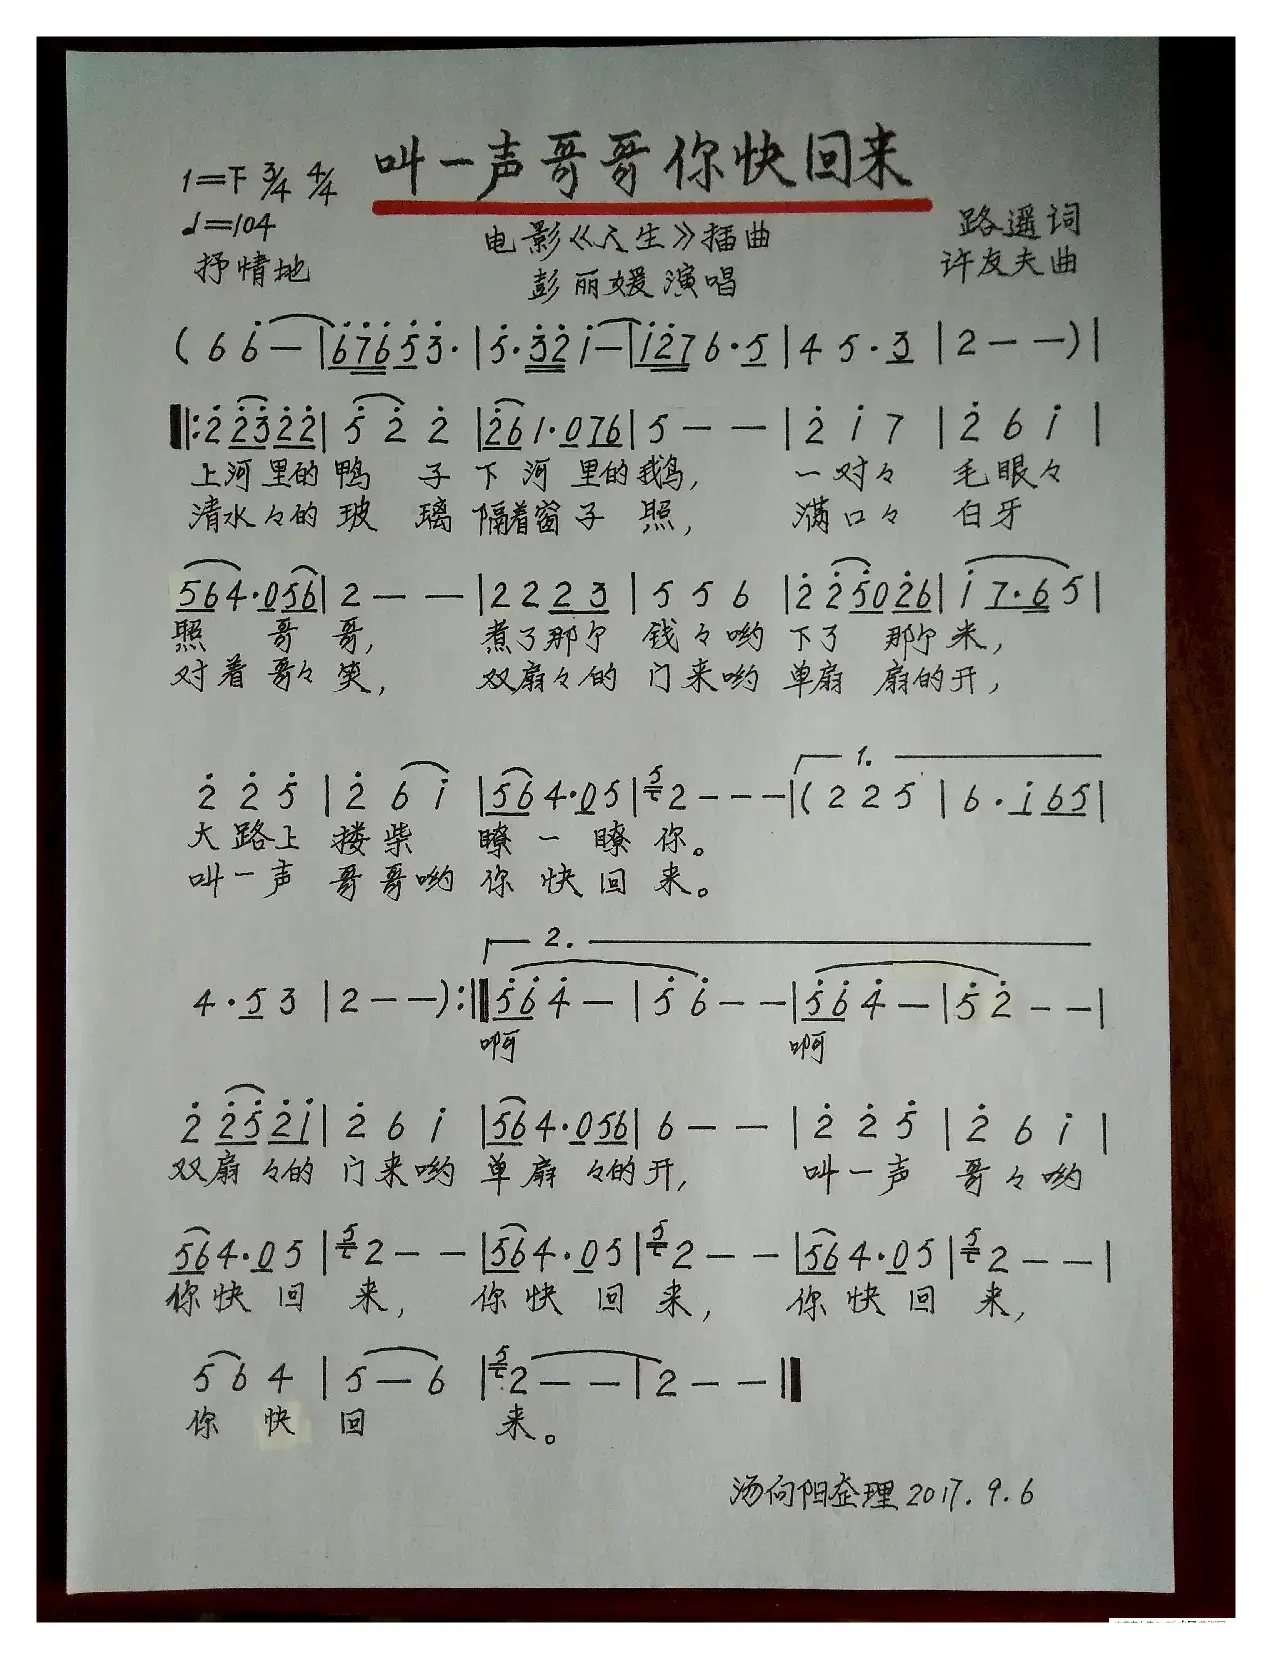 叫一声哥哥你快回来
1=下 3/4 4/4
♩=104
抒情地
电影《人生》插曲
彭丽媛演唱
路遥词
许友夫曲
(6 i̇ — | 6̇7̇6̇ 5̇ 3̇· | 5̇· 3̇2̇ i — | i2̇7 6· 5 | 4 5· 3 | 2 — —) |
‖: 2̇ 2̇3̇ 2̇2̇ | 5̇ 2̇ 2̇ | 2̇6 1· 0 76 | 5 — — | 2̇ i 7 | 2̇ 6 i |
上河里的鸭 子 下 河 里的鹅, 一对々 毛眼々
清水々的 玻 璃 隔着窗子 照, 满口々 白牙
564· 0 56 | 2 — — | 2 2 2 3 | 5 5 6 | 2̇ 2̇5̇0 2̇6 | i 7· 6 5 |
照 哥 哥, 煮了那个 钱々哟 下了 那个 米,
对着哥々 笑, 双扇々的 门来哟 单扇 扇的开,
1.
2̇ 2̇ 5̇ | 2̇ 6 i | 564· 0 5 | 5 2 — — — | (2 2 5 | 6· i 6 5 |
大路上 搂柴 瞭一瞭 你。
叫一声 哥哥哟 你快回 来。
2.
4· 5 3 | 2 — —) :‖ 5̇6̇ 4̇ — | 5̇ 6̇ — — | 5̇6̇ 4̇ — | 5̇ 2̇ — — |
啊 啊
2̇ 2̇5̇ 2̇i | 2̇ 6 i | 564· 0 56 | 6 — — | 2̇ 2̇ 5̇ | 2̇ 6 i |
双扇々的 门来哟 单扇 々的开, 叫一声 哥々哟
564· 0 5 | 5 2 — — | 564· 0 5 | 5 2 — — | 564· 0 5 | 5 2 — — |
你快回 来, 你快回 来, 你快回 来,
5 6 4 | 5 — 6 | 5 2 — — | 2 — — ‖
你 快 回 来。
汤向阳整理2017.9.6